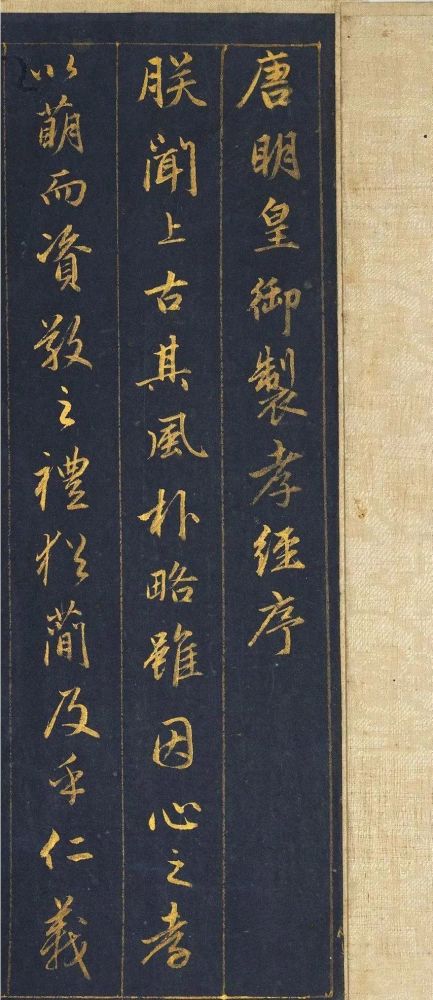 唐明皇御製孝經序
朕聞上古其風朴略雖因心之孝
以萌而資敬之禮猶簡及乎仁義